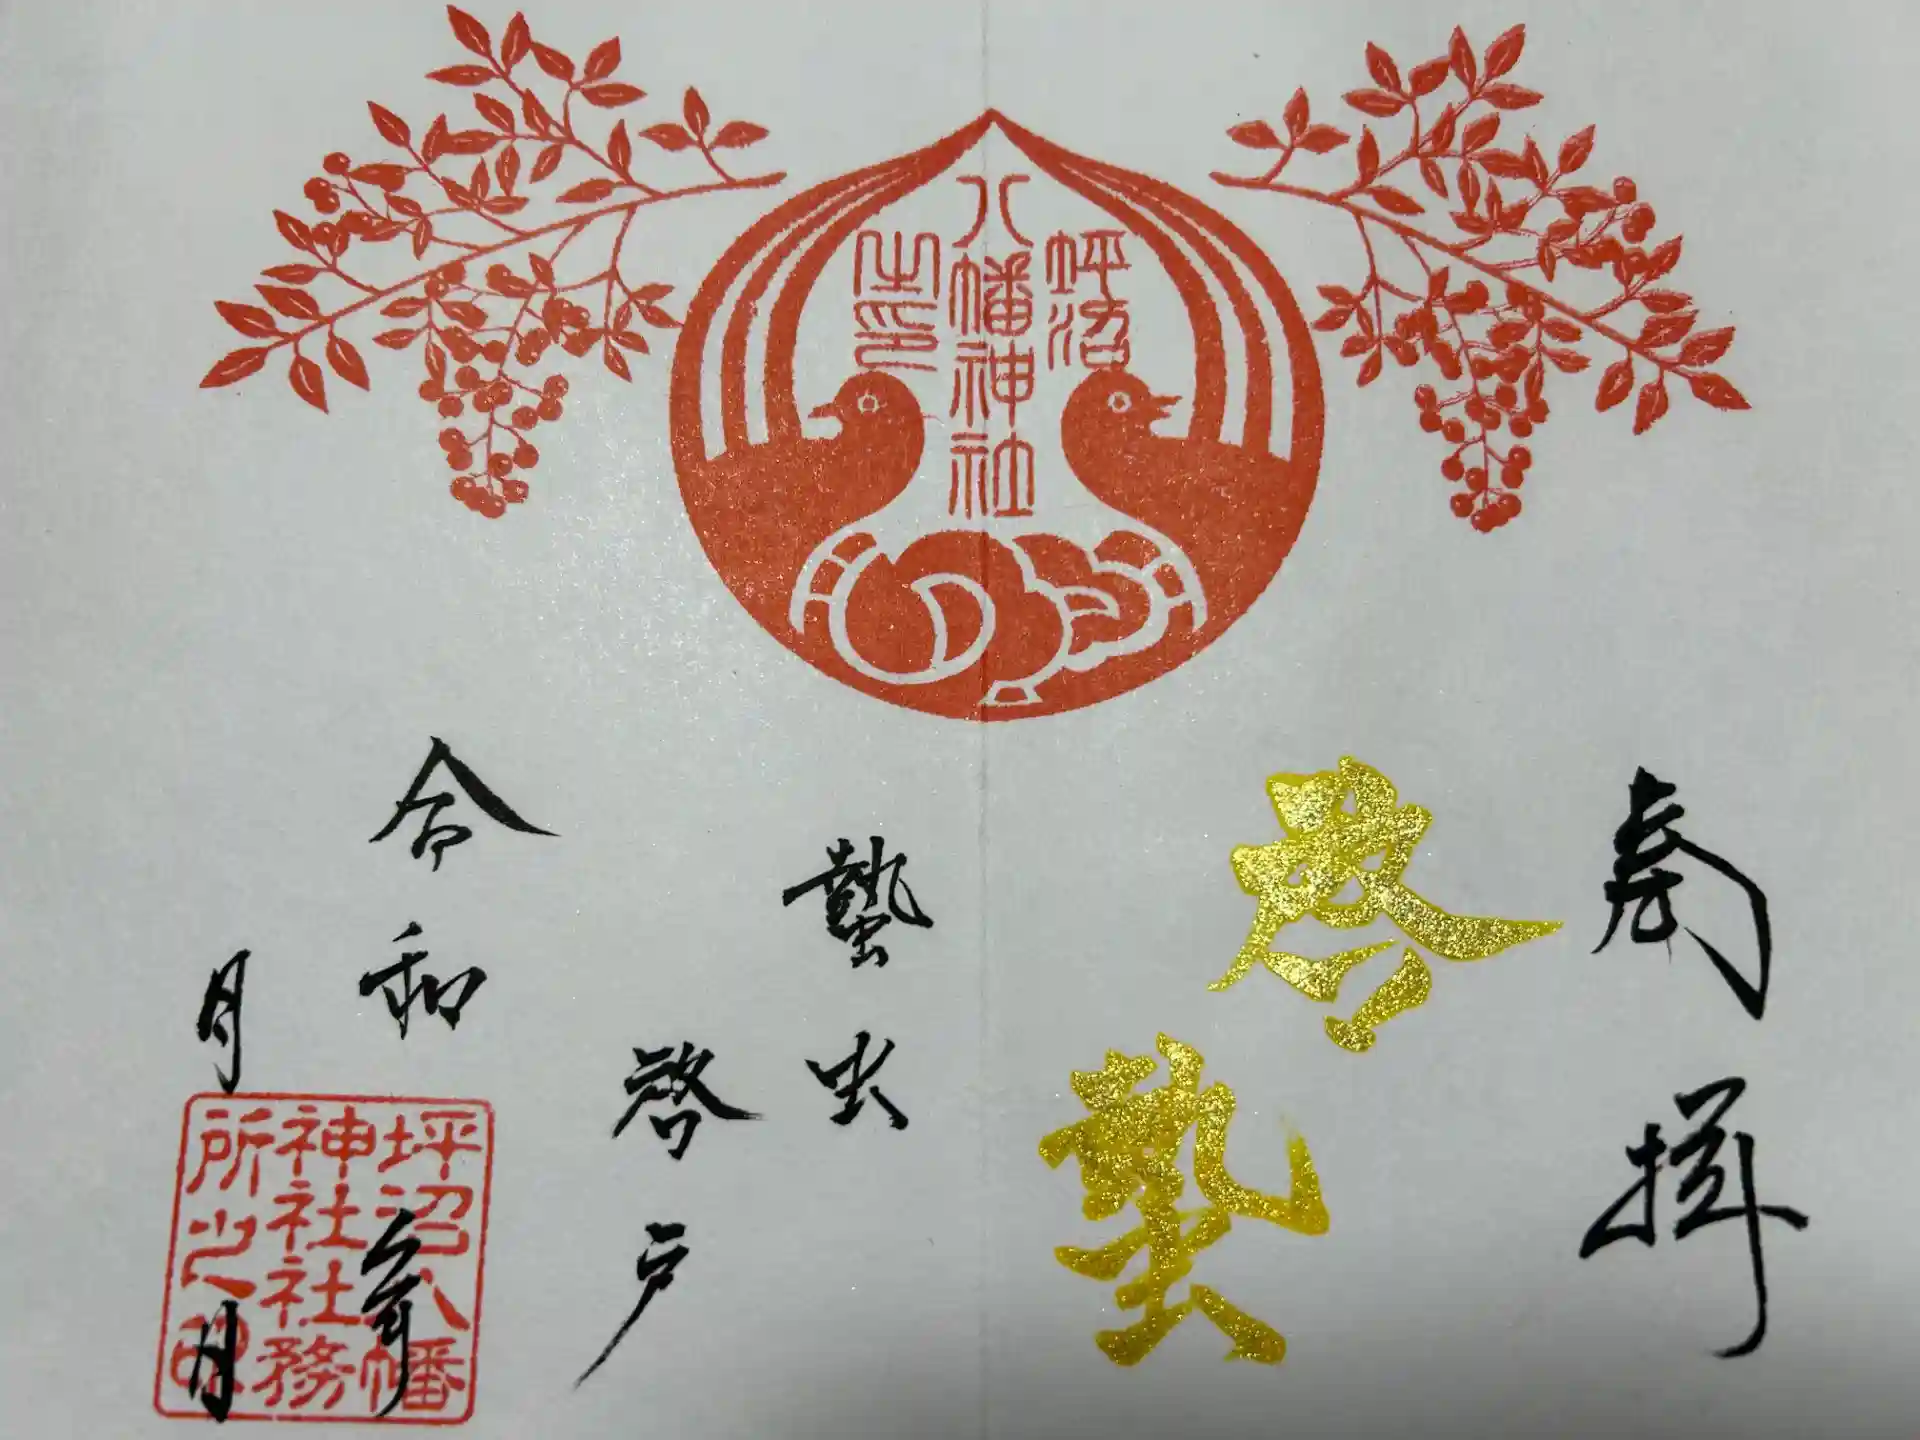 坪沼
八幡神社
之印
奉拝
啓蟄
蟄虫
啓戸
令和年
月日
坪沼八幡
神社社務
所之印